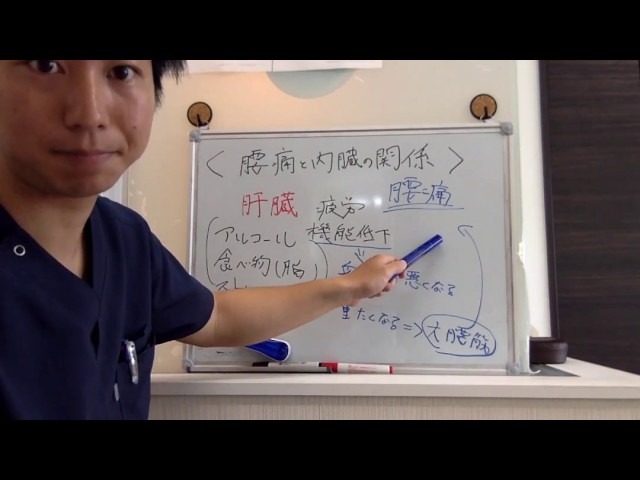 〈 腰痛と内臓の関係 〉
肝臓 疲労 腰痛
アルコール 機能低下
食べ物(脂)
スト
悪くなる
重たくなる ⇒ 大腰筋